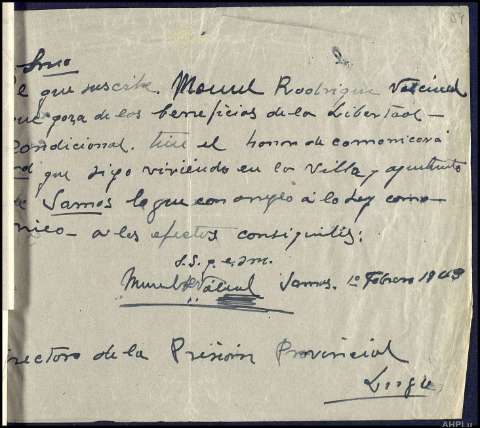 Srno
el que suscribe. Manuel Rodrigue Valcárcel
que goza de los beneficios de la Libertad-
Condicional. tiene el honor de comunicar a
que sigo viviendo en la villa y
de Samos lo que con areglo a lo Ley como-
nico- a los efectos consiguites:
s.s.q.e.s.m.
Manuel R Valcarcel Samos. 1º Febrero 1943
Directoro de la Prisión Provincial
Lugo
AHPLu